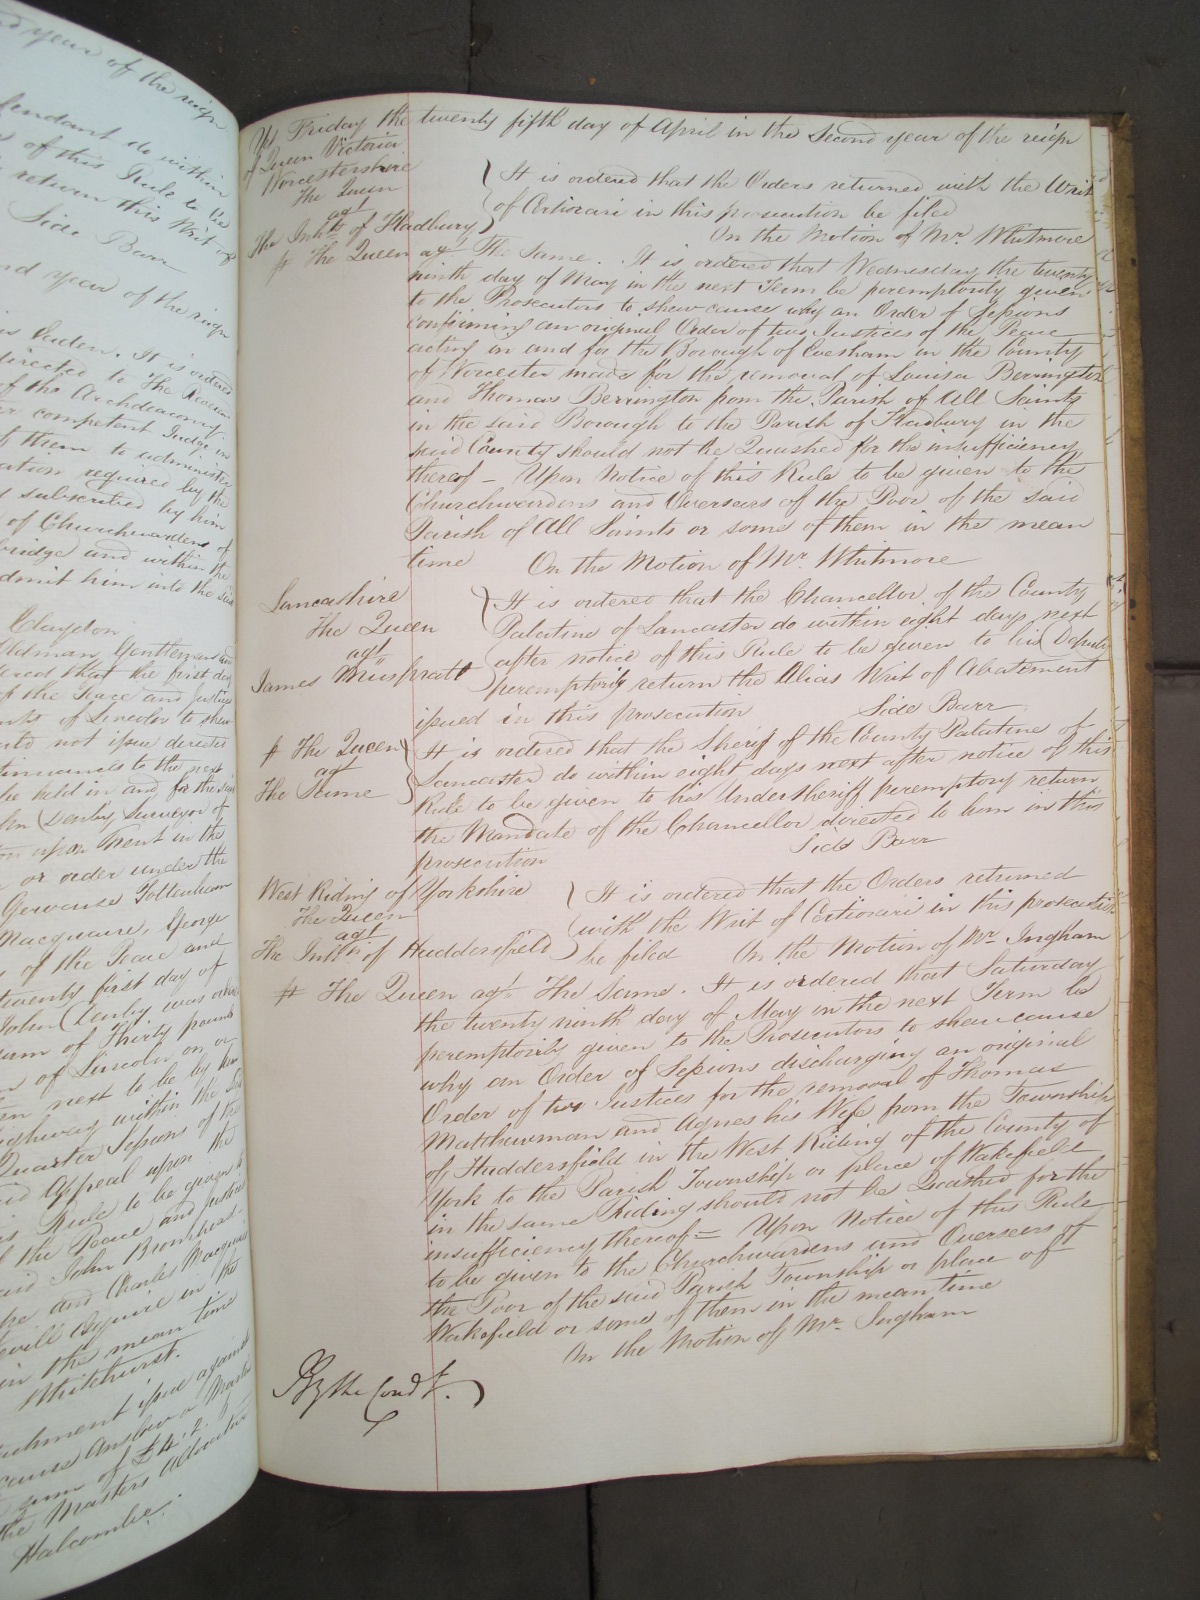 nd year of the reign
fendant do within
of this Rule to be
return this Writ of
Side Barr
nd year of the reign
It is ordered
directed to The Reverend
of the Archdeaconry
or competent Judge in
them to administer
ation required by the
d subscribed by him
of Churchwardens of
bridge and within the
dmit him into the said
Claydon
Oldman Gentleman
ered that the first day
of the Peace and Justices
nts of Lincoln to shew
uld not issue directed
tinuances to the next
be held in and for the said
hn Denby Surveyor of
on upon Trent in the
or order under the
Gervause Tottenham
Macquaire, George
of the Peace and
twenty first day of
John Denby was
sum of Thirty pounds
of Lincoln on or
en next to be by him
ighways within the said
Quarter Sessions of the
id Appeal upon the
is Rule to be given to
of the Peace and Justice
said John Bromhead
and Charles Macquaire
evill Esquire in the
in the mean time
Whitehurst.
achment issue against
cause Answer a Master
sum of £4.2.
the Masters Allocatur
Halcombe.
Upt Friday the twenty fifth day of April in the Second year of the reign
of Queen Victoria
Worcestershire
The Queen
agt
The Inhts of Fladbury
It is ordered that the Orders returned with the Writ
of Certiorari in this prosecution be filed
On the Motion of Mr. Whitmore
# The Queen agt The Same. It is ordered that Wednesday the twenty
ninth day of May in the next Term be peremptorily given
to the Prosecutors to shew cause why an Order of Sessions
confirming an original Order of two Justices of the Peace
acting in and for the Borough of Evesham in the County
of Worcester made for the removal of Louisa Berrington
and Thomas Berrington from the Parish of All Saints
in the said Borough to the Parish of Fladbury in the
said County should not be Quashed for the insufficiency
thereof – Upon Notice of this Rule to be given to the
Churchwardens and Overseers of the Poor of the said
Parish of All Saints or some of them in the mean
time On the Motion of Mr. Whitmore
Lancashire
The Queen
agt
James Muspratt
It is ordered that the Chancellor of the County
Palatine of Lancaster do within eight days next
after notice of this Rule to be given to his Deputy
peremptorily return the Alias Writ of Abatement
issued in this prosecution Side Barr
# The Queen
agt
The Same
It is ordered that the Sheriff of the County Palatine of
Lancaster do within eight days next after notice of this
Rule to be given to his Undersheriff peremptory return
the Mandate of the Chancellor directed to him in this
prosecution Side Barr
West Riding of Yorkshire
The Queen
agt
The Inhts of Huddersfield
It is ordered that the Orders returned
with the Writ of Certiorari in this prosecution
be filed On the Motion of Mr. Ingham
# The Queen agt The Same. It is ordered that Saturday
the twenty ninth day of May in the next Term be
peremptorily given to the Prosecutors to shew cause
why an Order of Sessions discharging an original
Order of two Justices for the removal of Thomas
Matthewman and Agnes his Wife from the Township
of Huddersfield in the West Riding of the County of
York to the Parish Township or place of Wakefield
in the same Riding should not be Quashed for the
insufficiency thereof = Upon Notice of this Rule
to be given to the Churchwardens and Overseers of
the Poor of the said Parish Township or place of
Wakefield or some of them in the mean time
On the Motion of Mr. Ingham
By the Court